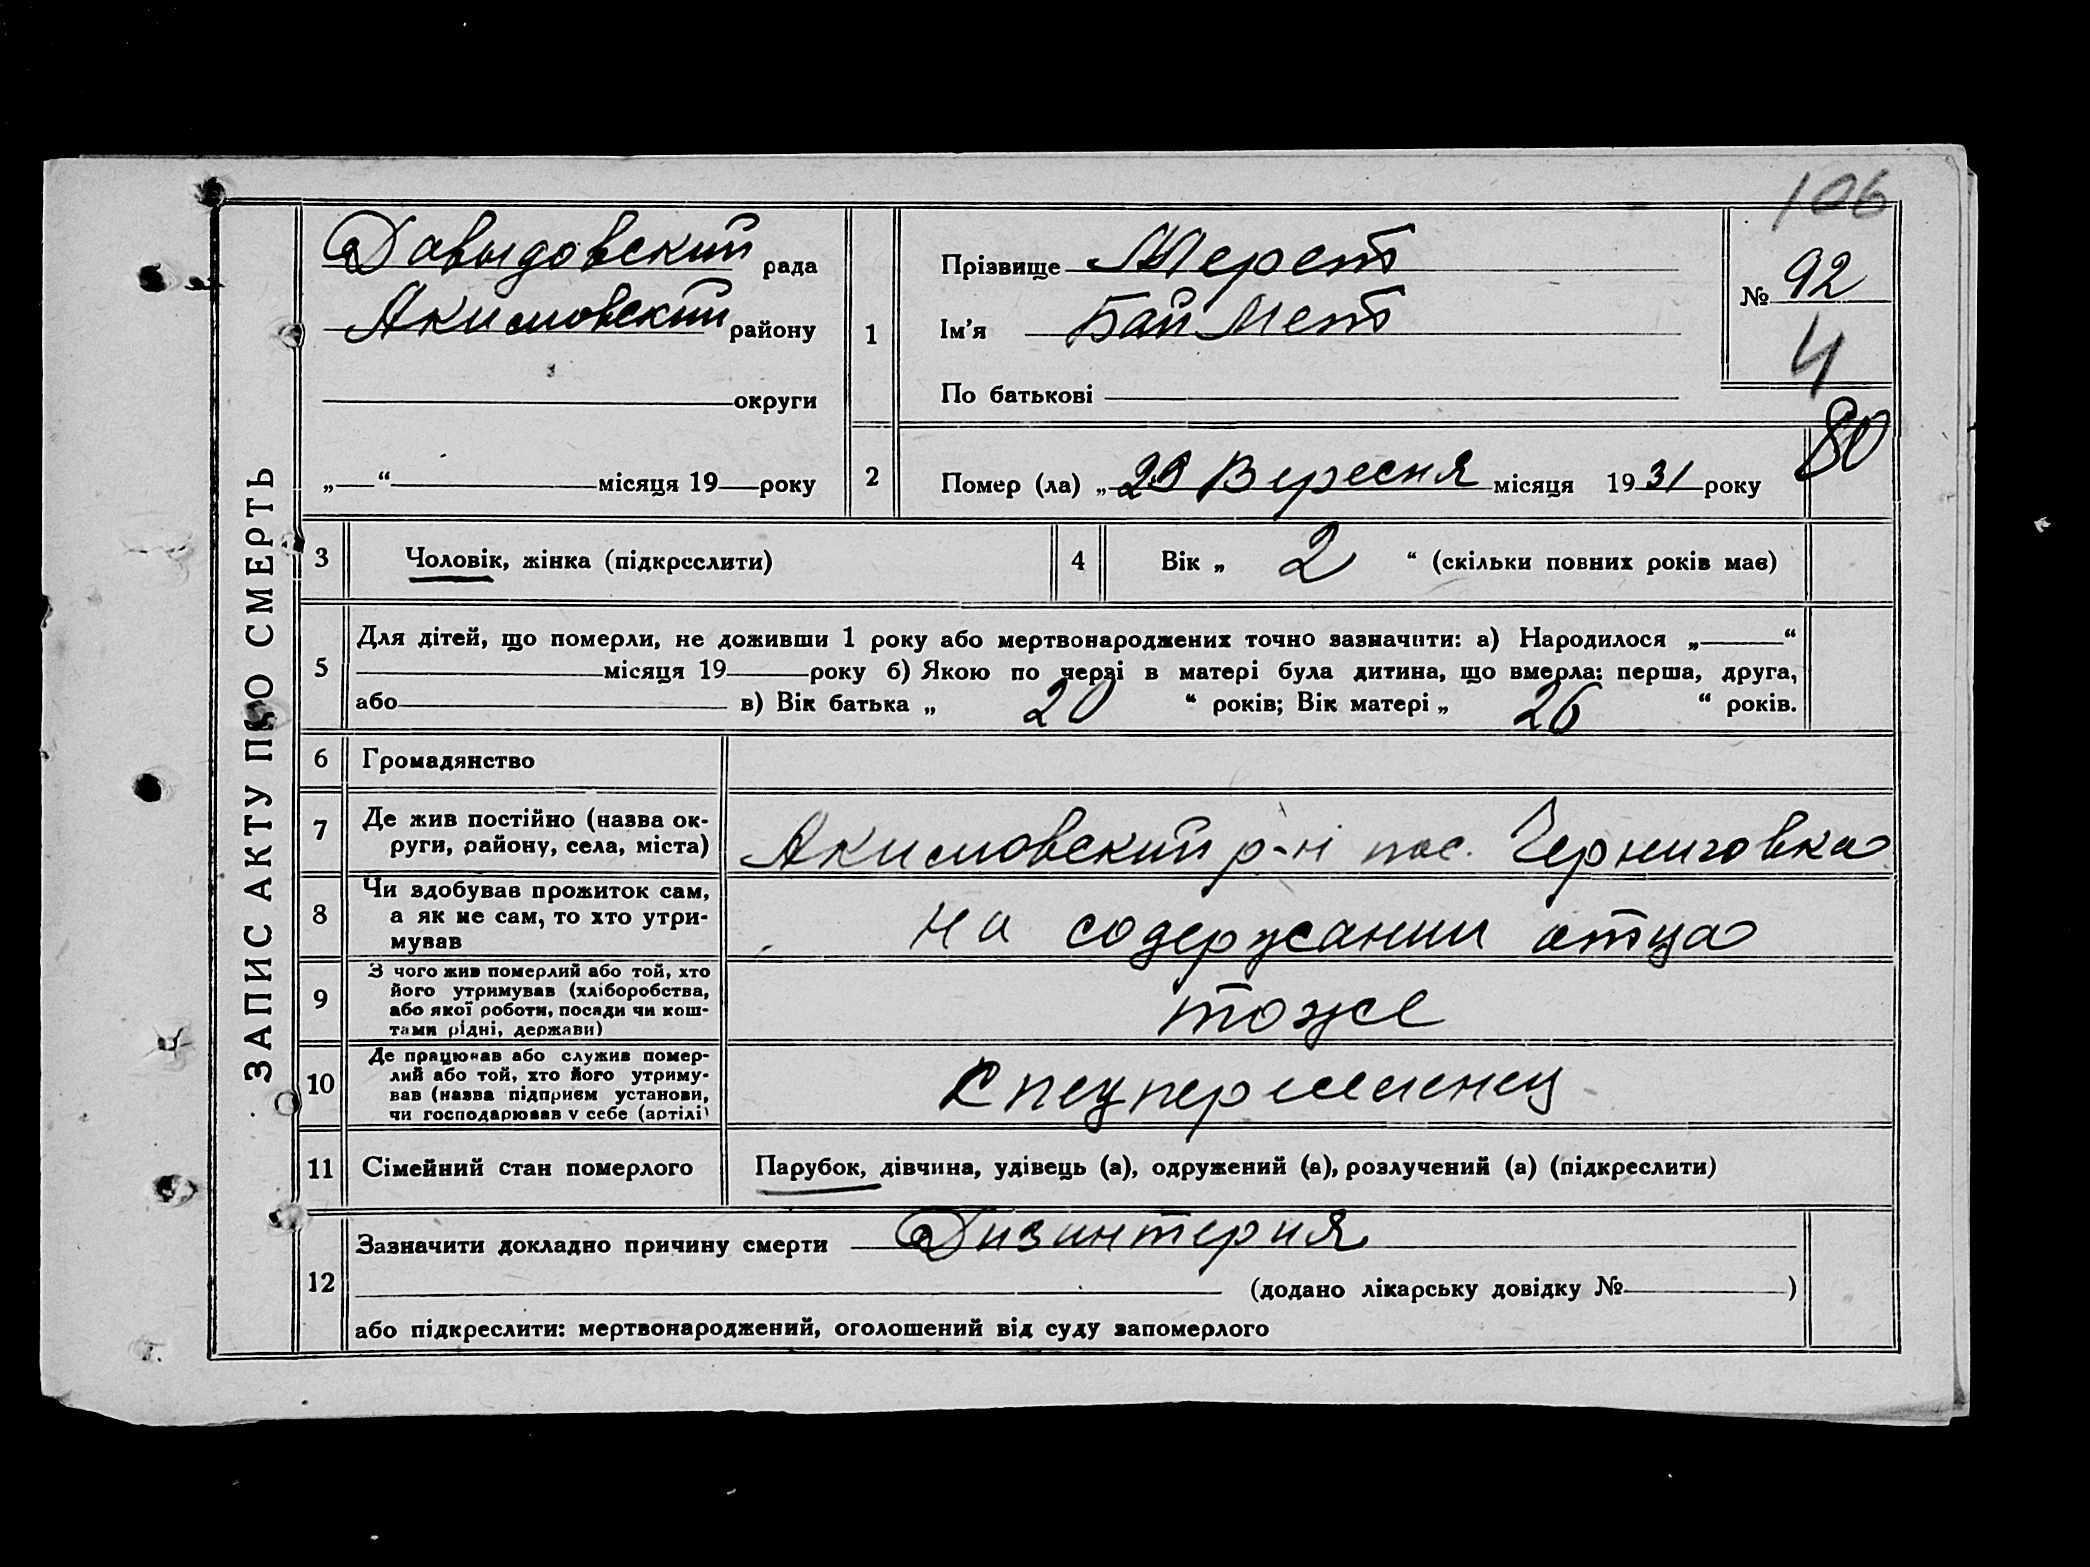 106
ЗАПИС АКТУ ПРО СМЕРТЬ
Давыдовский рада
Акимовский району
округи
„ “ місяця 19 року
1
Прізвище Мерет
Ім'я Бай Мет
По батькові
№ 92
4
80
2
Помер (ла) „ 29 Вересня місяця 1931 року
3
Чоловік, жінка (підкреслити)
4
Вік „ 2 “ (скільки повних років має)
5
Для дітей, що померли, не доживши 1 року або мертвонароджених точно зазначити: а) Народилося „ “
місяця 19 року б) Якою по черзі в матері була дитина, що вмерла: перша, друга,
або в) Вік батька „ 20 “ років; Вік матері „ 26 “ років.
6
Громадянство
7
Де жив постійно (назва ок-
руги, району, села, міста)
Акимовский р-н пос. Черниговка
8
Чи здобував прожиток сам,
а як не сам, то хто утри-
мував
на содержании отца
9
З чого жив померлий або той, хто
його утримував (хліборобства,
або якої роботи, посади чи кош-
тами рідні, держави)
тоже
10
Де працював або служив помер-
лий або той, хто його утриму-
вав (назва підприєм установи,
чи господарював у себе (артілі)
Спецпереселенец
11
Сімейний стан померлого
Парубок, дівчина, удівець (а), одружений (а), розлучений (а) (підкреслити)
12
Зазначити докладно причину смерти Дизинтерия
(додано лікарську довідку № )
або підкреслити: мертвонароджений, оголошений від суду запомерлого